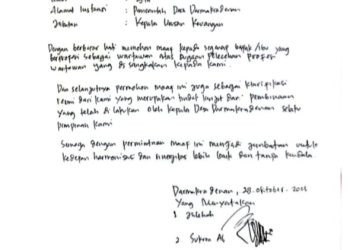 Alamat Instansi : Pemerintah Desa Darmakradenan
Jabatan : Kepala Urusan Keuangan
Dengan berbesar hati memohon maaf kepada segenap bapak/ibu yang
berprofesi sebagai wartawan atas dugaan pelecehan profesi
wartawan yang di sangkakan kepada kami.
Dan selanjutnya permohonan maaf ini juga sebagai klarifikasi
resmi dari kami yang merupakan tindak lanjut dari pembinaan
yang telah di lakukan oleh Kepala Desa Darmakradenan selaku
pimpinan kami
Semoga dengan permintaan maaf ini menjadi jembatan untuk
kedepan harmonisasi dan sinergitas lebih baik dan tanpa kendala.
Darmakradenan, 28. Oktober.
Yang Menyatakan
1
2